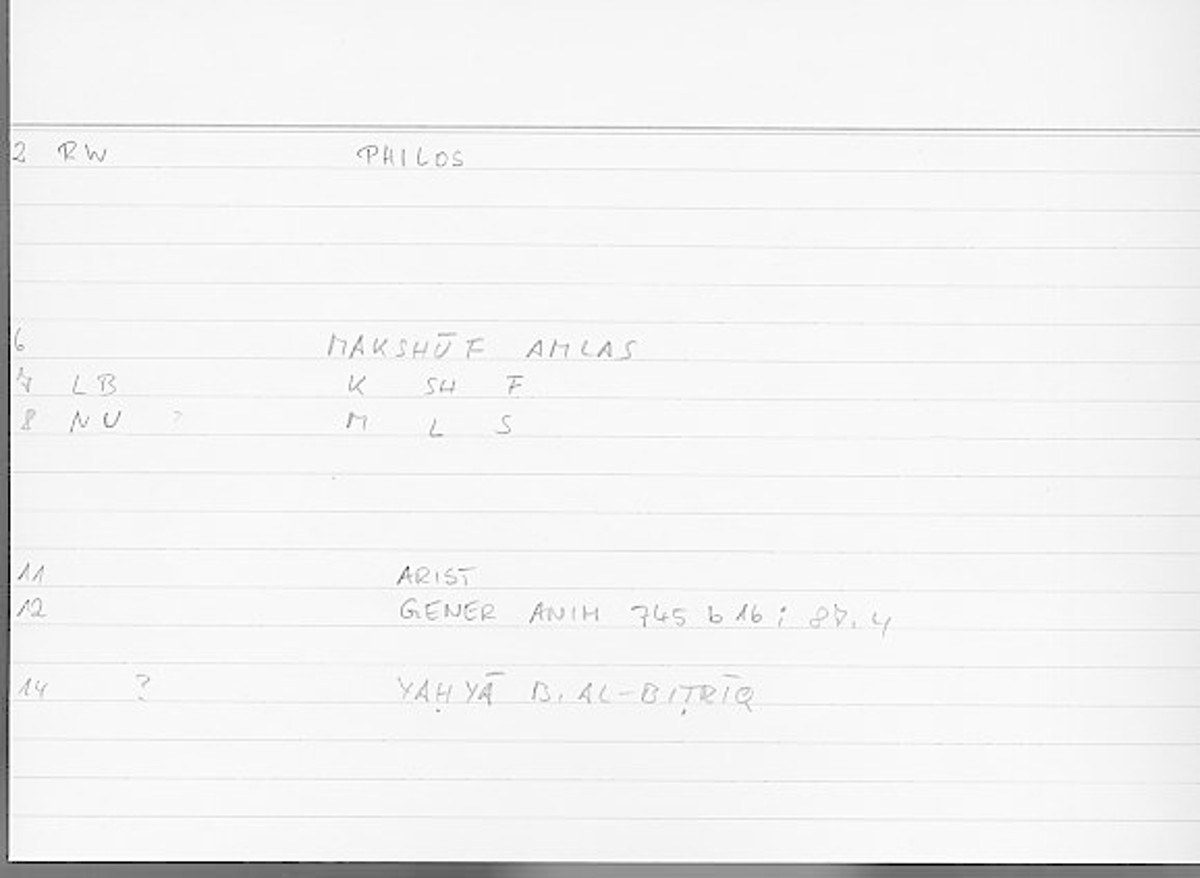 2 RW PHILOS
6 MAKSHŪF AMLAS
7 LB K SH F
8 NU ? M L S
11 ARIST
12 GENER ANIM 745 b 16 ; 87.4
14 ? YAḤYĀ B. AL-BIṬRĪQ